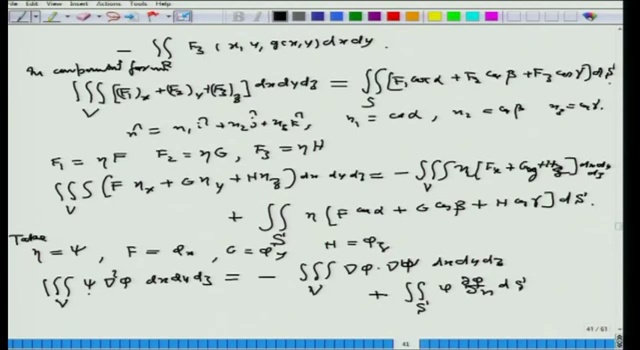 View Insert Actions Tools Help
− ∬_R F₃ (x, y, g(x,y)) dx dy.
In component form
∭_V [(F₁)_x + (F₂)_y + (F₃)_z] dx dy dz = ∬_S [F₁ cos α + F₂ cos β + F₃ cos γ] dS.
n̂ = n₁ î + n₂ ĵ + n₃ k̂, n₁ = cos α, n₂ = cos β n₃ = cos γ.
F₁ = η F F₂ = η G, F₃ = η H
∭_V (F η_x + G η_y + H η_z) dx dy dz = − ∭_V η [F_x + G_y + H_z] dx dy dz
+ ∬_S η [F cos α + G cos β + H cos γ] dS.
Take
η = ψ, F = φ_x, G = φ_y H = φ_z
∭_V ψ ∇²φ dx dy dz = − ∭_V ∇φ · ∇ψ dx dy dz
+ ∬_S ψ ∂φ/∂n dS
41 / 61
41